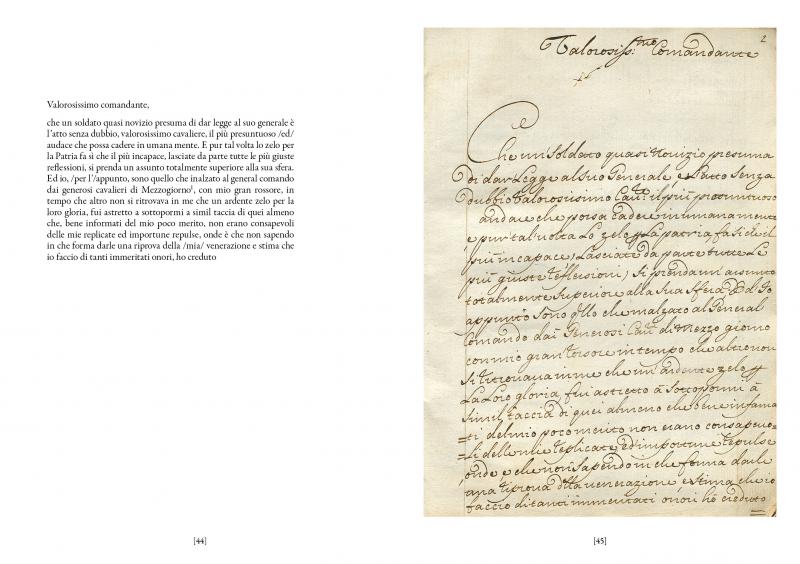 Valorosissimo comandante,
che un soldato quasi novizio presuma di dar legge al suo generale è
l'atto senza dubbio, valorosissimo cavaliere, il più presuntuoso /ed/
audace che possa cadere in umana mente. E pur tal volta lo zelo per
la Patria fa sì che il più incapace, lasciate da parte tutte le più giuste
reflessioni, si prenda un assunto totalmente superiore alla sua sfera.
Ed io, /per l'/appunto, sono quello che inalzato al general comando
dai generosi cavalieri di Mezzogiorno¹, con mio gran rossore, in
tempo che altro non si ritrovava in me che un ardente zelo per la
loro gloria, fui astretto a sottopormi a simil taccia di quei almeno
che, bene informati del mio poco merito, non erano consapevoli
delle mie replicate ed importune repulse, onde è che non sapendo
in che forma darle una riprova della /mia/ venerazione e stima che
io faccio di tanti immeritati onori, ho creduto
[44]
2
Valorosiss:mo Comandante
Che un Soldato quasi Novizio presuma
di dar Legge al Suo Generale è l'atto Senza
dubbio Valorosissimo Cavre: il più presontuoso
audace che possa Cadere in umana mente
e pur tal volta Lo zelo p La patria, fa si che il
più incapace, Lasciate da parte tutte Le
più giuste reflessioni, Si prenda un assunto
totalmente Superiore alla Sua Sfera Ed Io
appunto Sono qllo che inalzato al General
Comando dai Generosi Cavri di Mezzo giorno
con mio gran rossore in tempo che altro non
Si ritrovava in me che un ardente zelo p
La Loro gloria, fui astretto à Sottopormi à
Simil taccia di quei almeno che bene informa
=ti del mio poco merito non erano consapevo=
=li delle mie replicate ed importune repulse
onde è che non Sapendo in che forma darle
una riprova dlla venerazione e stima che io
faccio di tanti immeritati onori ho creduto
[45]